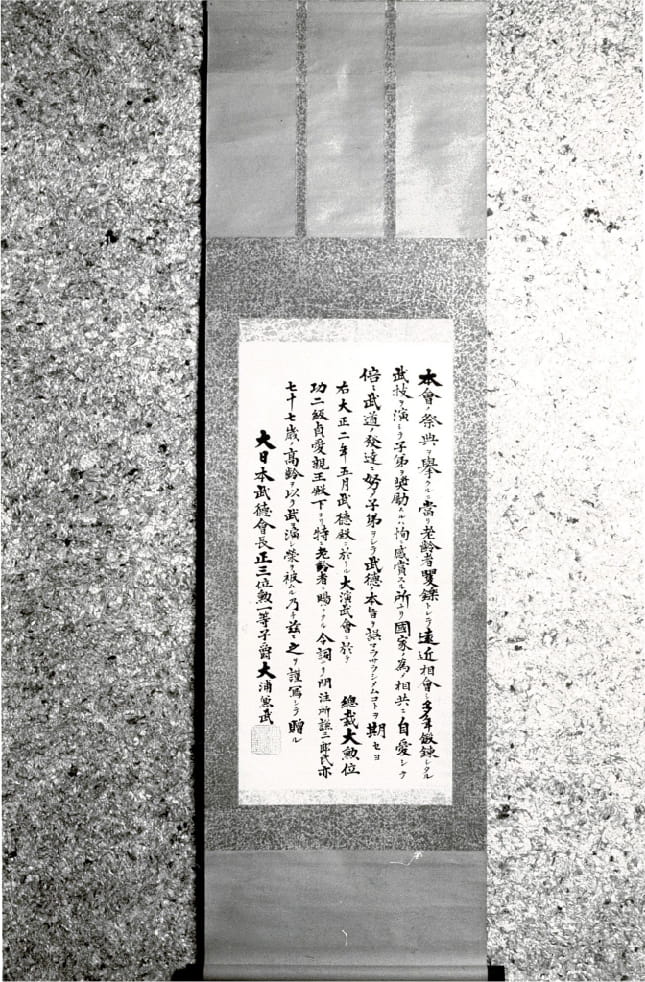 本會ノ祭典ヲ擧クルニ當リ老齡者矍鑠トシテ遠近相會シ多年鍛錬シタル
武技ヲ演シテ子弟ヲ奬勵スルハ洵ニ感賞スル所ナリ國家ノ為メ相共ニ自愛シテ
倍ミ武道ノ發達ニ努メ子弟ヲシテ武德ノ本旨ヲ誤マラサラシメムコトヲ期セヨ
右大正二年五月武德殿ニ於ケル大演武會ニ於テ 總裁大勲位
功二級貞愛親王殿下ヨリ特ニ老齡者ニ賜ハリタル令詞ナリ問注所謙二郎氏亦
七十七歳ノ高齡ヲ以テ武ヲ演シ榮ヲ被ムル乃チ玆ニ之ヲ謹寫シテ贈ル
大日本武德會長正三位勲一等子爵大浦兼武